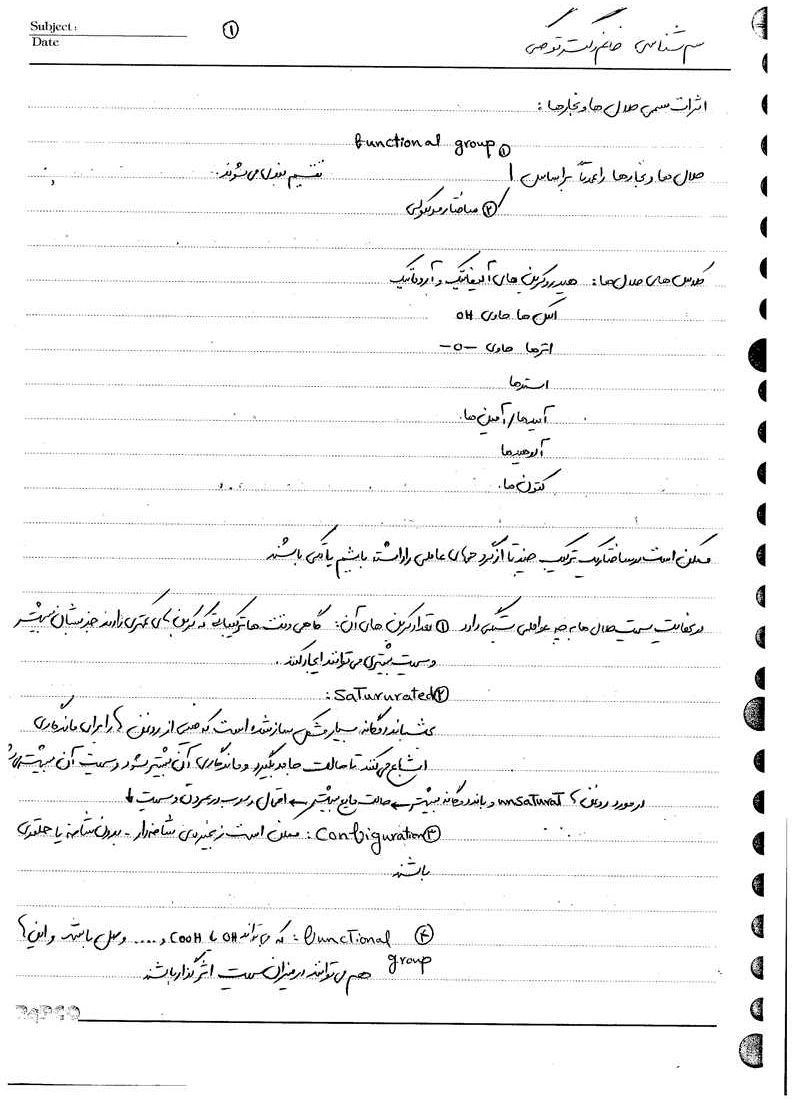 Subject:
Date
①
سم شناسی خانم دکتر توکلی
اثرات سمی حلال ها و بخارها:
① functional group
حلال ها و بخارها را عمدتاً براساس تقسیم بندی می شوند.
② ساختار مولکولی
کلاس های حلال ها: هیدروکربن های آلیفاتیک و آروماتیک
الکل ها حاوی OH
اترها حاوی -O-
استرها
آمیدها/آمین ها.
آلدهیدها
کتون ها.
ممکن است در ساختار یک ترکیب چند تا از گروههای عاملی را داشته باشیم یا یکی باشند
در نهایت سمیت حلال ها به چه عواملی بستگی دارد ① تعداد کربن های آن: گاهی وقت ها ترکیباتی که کربن های کمتری دارند جذبشان بیشتر
و سمیت بیشتری می توانند ایجاد کنند.
② Satururated:
بحث باند دوگانه بسیار مشکل ساز شده است که حتی از روغن ها را برای ماندگاری
اشباع می کنند تا حالت جامد بگیرد و ماندگاری آن بیشتر بشود و سمیت آن بیشتر می شود
در مورد روغن های unsaturat و باند دوگانه بیشتر ← حالت مایع بیشتر ← احتمال رسوب در عروق و سمیت ↓
③ Configuration: ممکن است زنجیره ی شاخه دار - بدون شاخه یا حلقوی
باشند
④ functional group: که می تواند OH یا COOH و .... وصل باشد و این ها
هم می توانند در میزان سمیت اثرگذار باشند
PAPCO